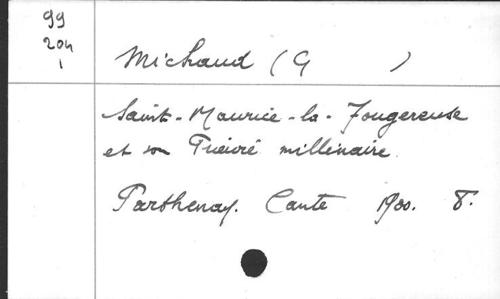 99
204
1
Michaud (G )
Saint-Maurice-la-Fougereuse
et son Prieuré millénaire.
Parthenay. Cante 1900. 8.